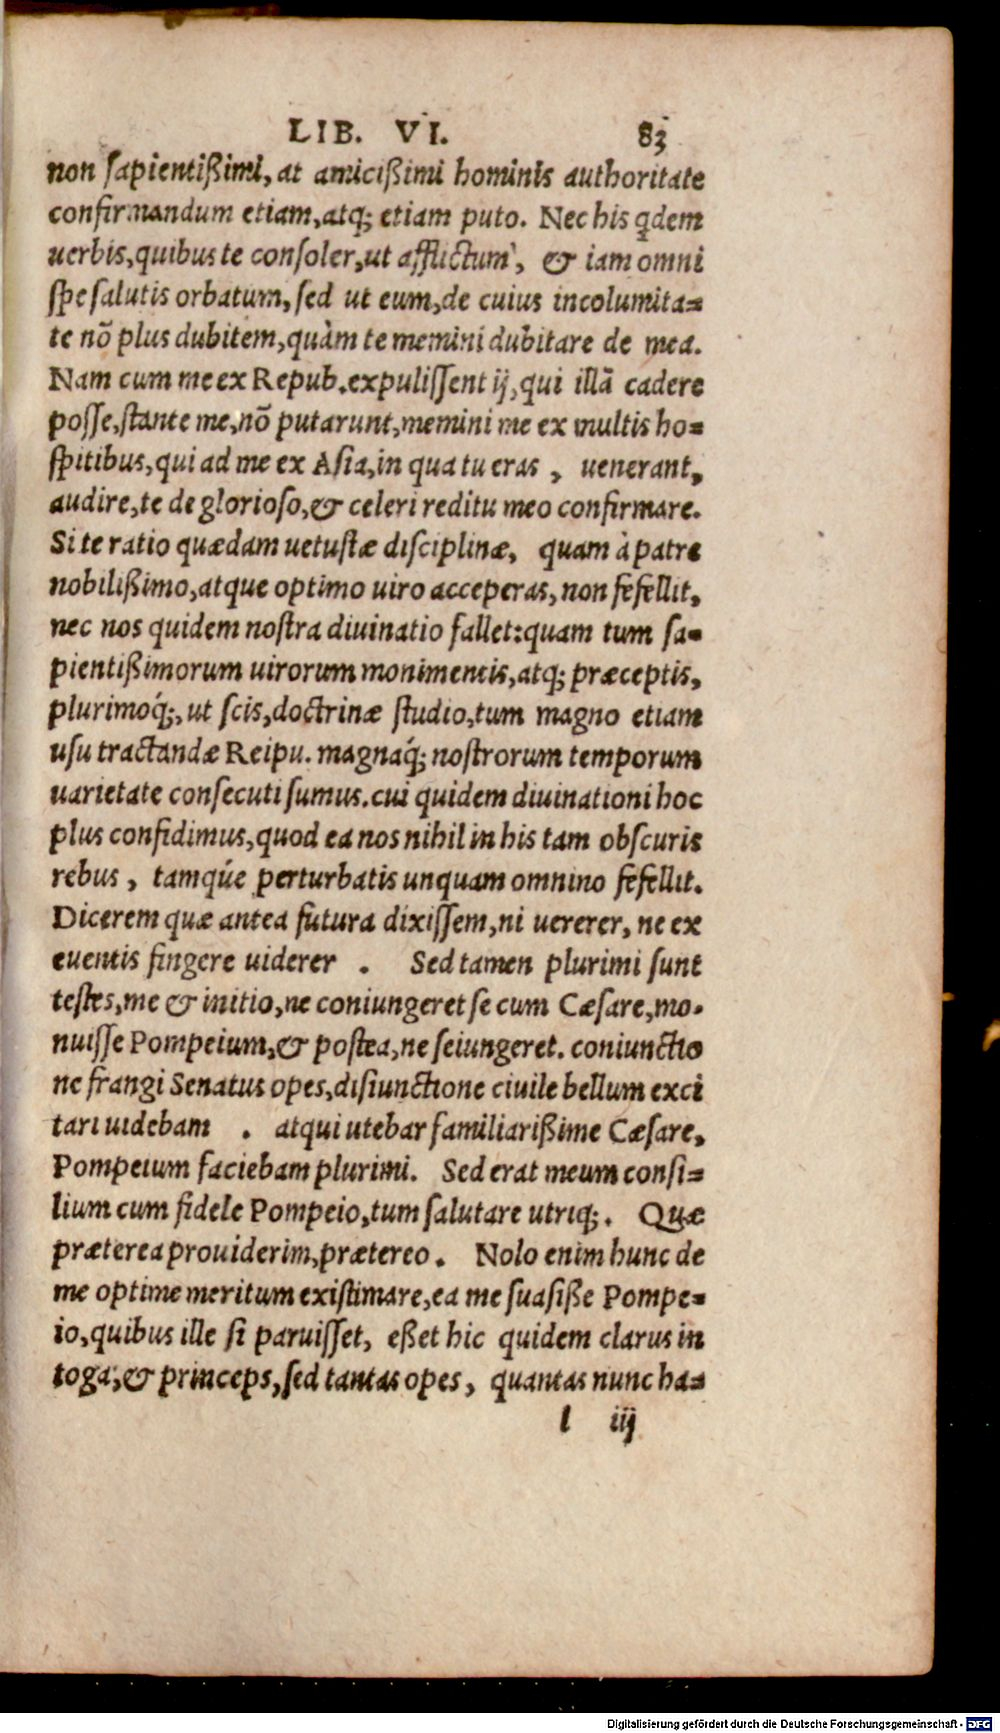 LIB. VI. 83
non sapientißimi, at amicißimi hominis authoritate
confirmandum etiam, atq; etiam puto. Nec his qdem
uerbis, quibus te consoler, ut afflictum, & iam omni
spe salutis orbatum, sed ut eum, de cuius incolumita=
te nõ plus dubitem, quàm te memini dubitare de mea.
Nam cum me ex Repub. expulissent ij, qui illã cadere
posse, stante me, nõ putarunt, memini me ex multis ho=
spitibus, qui ad me ex Asia, in qua tu eras, uenerant,
audire, te de glorioso, & celeri reditu meo confirmare.
Si te ratio quædam uetustæ disciplinæ, quam à patre
nobilißimo, atque optimo uiro acceperas, non fefellit,
nec nos quidem nostra diuinatio fallet: quam tum sa=
pientißimorum uirorum monimentis, atq; præceptis,
plurimoq́;, ut scis, doctrinæ studio, tum magno etiam
usu tractandæ Reipu. magnaq́; nostrorum temporum
uarietate consecuti sumus. cui quidem diuinationi hoc
plus confidimus, quod ea nos nihil in his tam obscuris
rebus, tamq́ue perturbatis unquam omnino fefellit.
Dicerem quæ antea futura dixissem, ni uererer, ne ex
euentis fingere uiderer . Sed tamen plurimi sunt
testes, me & initio, ne coniungeret se cum Cæsare, mo-
nuisse Pompeium, & postea, ne seiungeret. coniunctio
ne frangi Senatus opes, disiunctione ciuile bellum exci
tari uidebam . atqui utebar familiarißime Cæsare,
Pompeium faciebam plurimi. Sed erat meum consi=
lium cum fidele Pompeio, tum salutare utriq;. Quæ
præterea prouiderim, prætereo. Nolo enim hunc de
me optime meritum existimare, ea me suasiße Pompe=
io, quibus ille si paruisset, eßet hic quidem clarus in
toga, & princeps, sed tantas opes, quantas nunc ha=
l iij
Digitalisierung gefördert durch die Deutsche Forschungsgemeinschaft - DFG